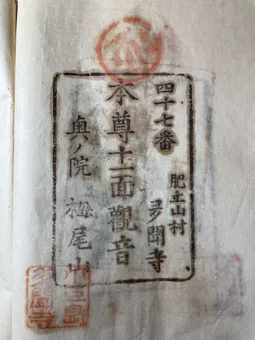 四十七番
肥土山村
多聞寺
本尊十一面觀音
奥ノ院 梅尾山
小豆島
多聞寺